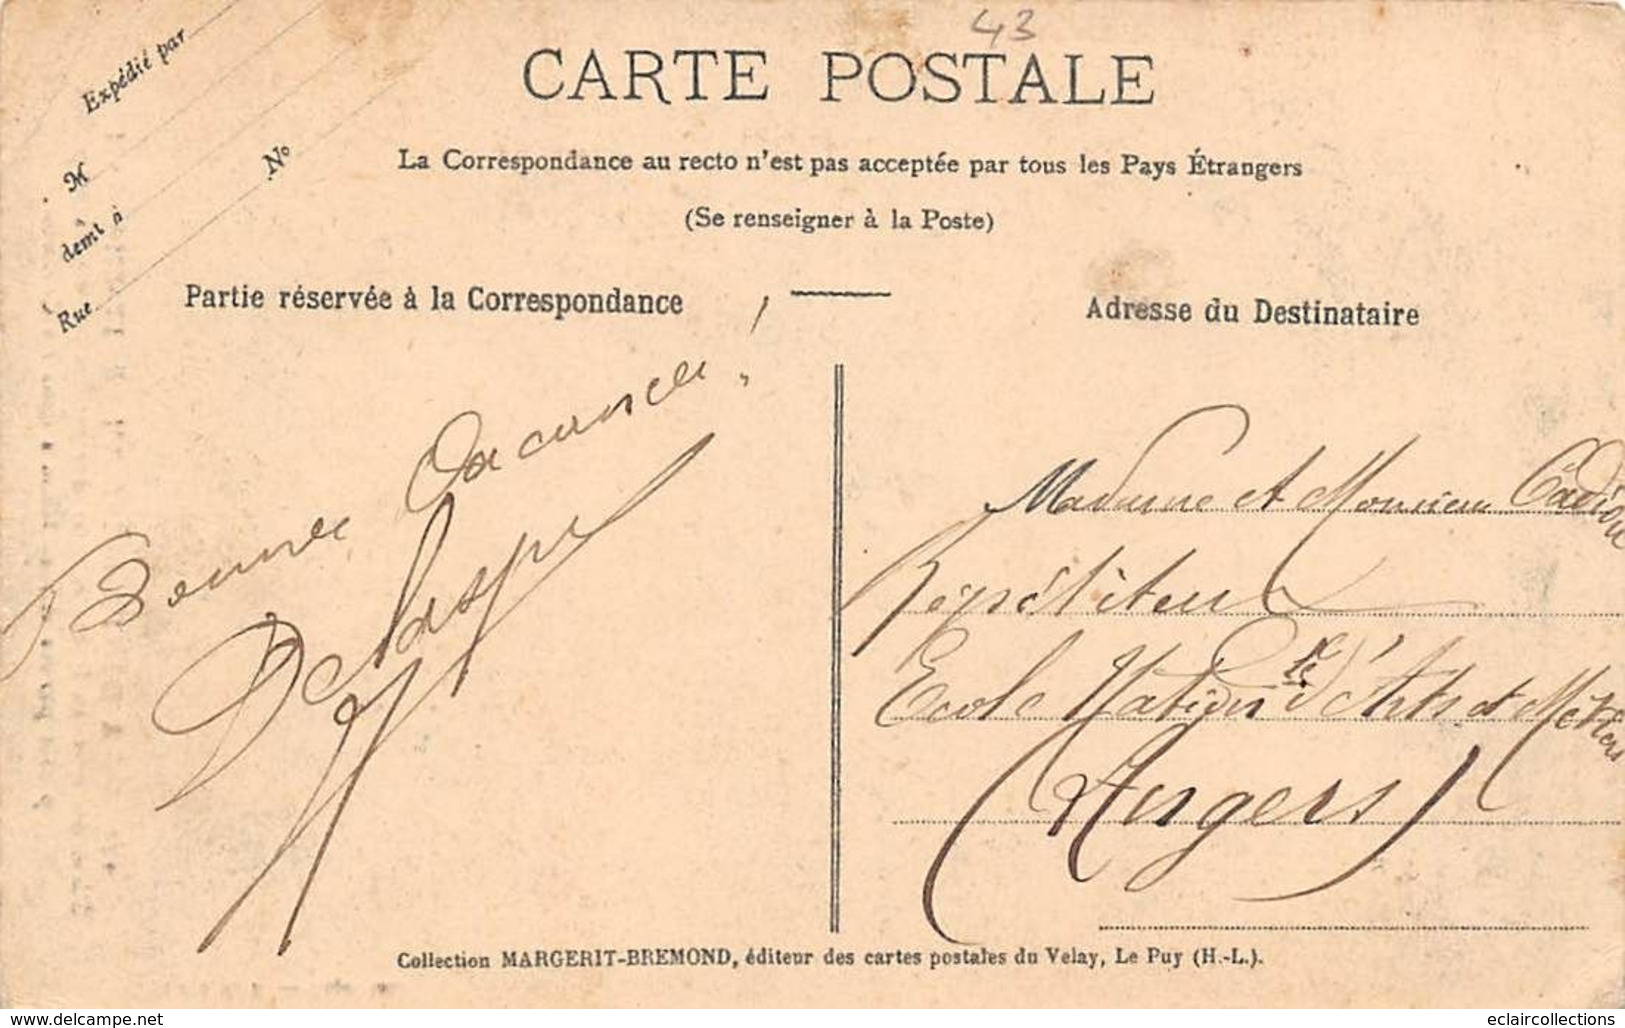 43
CARTE POSTALE
Expédié par
M
demt à
No
Rue
La Correspondance au recto n'est pas acceptée par tous les Pays Étrangers
(Se renseigner à la Poste)
Partie réservée à la Correspondance
Adresse du Destinataire
Bonnes Vacances !
Madame et Monsieur Cadiou
Répétiteur
Ecole Nationale d'Arts et Métiers
(Angers)
Collection MARGERIT-BREMOND, éditeur des cartes postales du Velay, Le Puy (H.-L.).
www.delcampe.net
eclaircollections